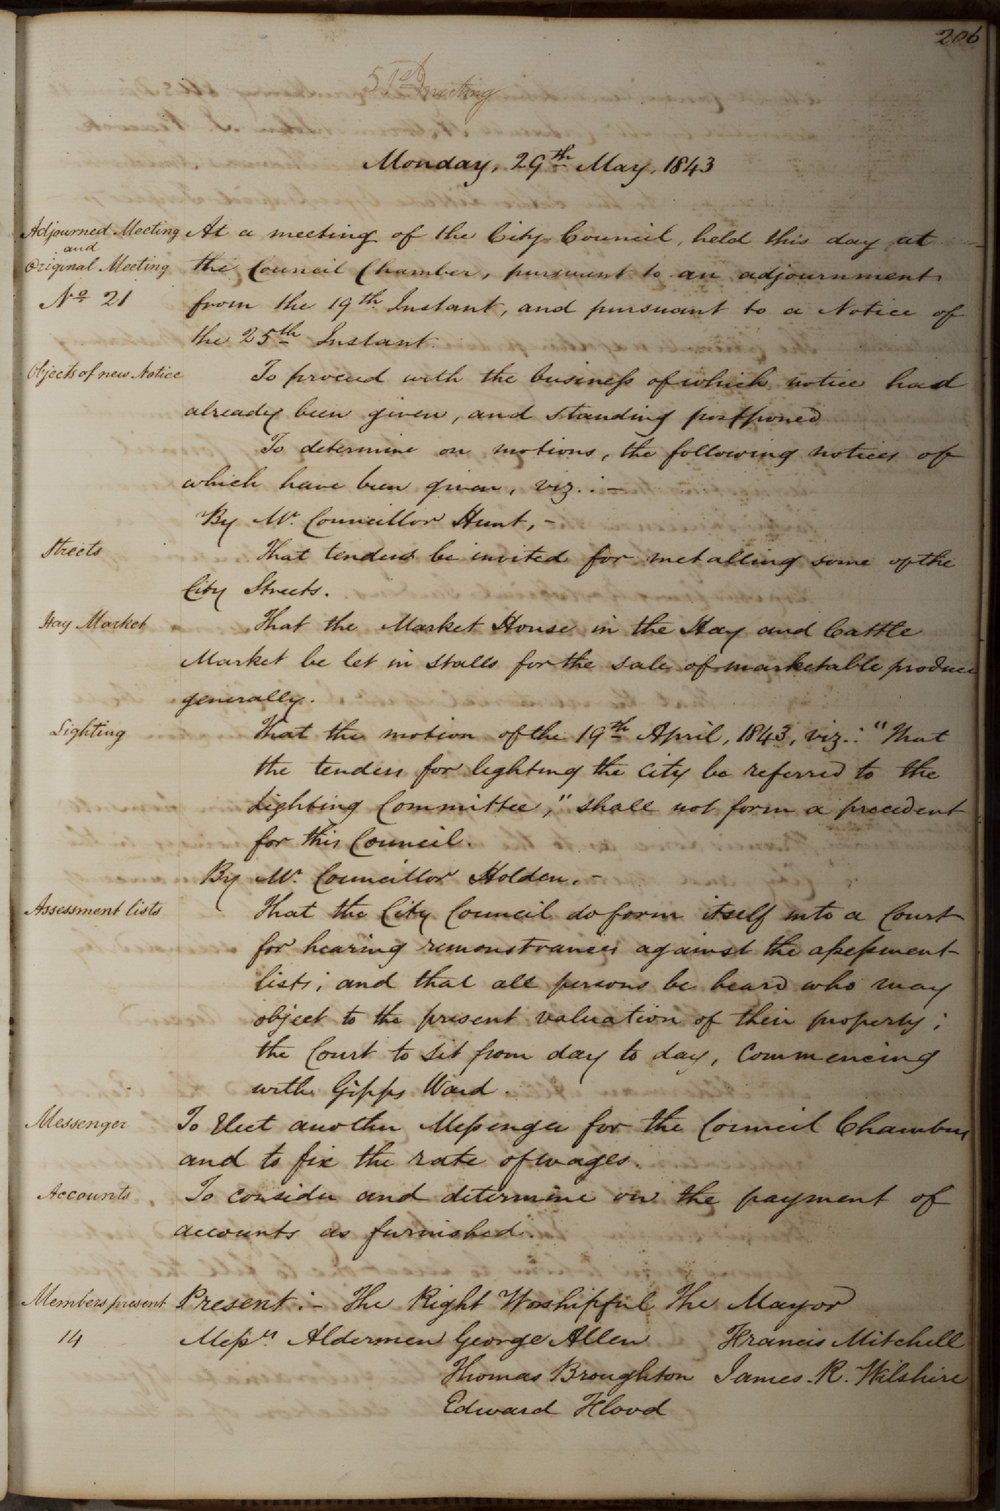 206
51st Meeting
Monday, 29th May, 1843
Adjourned Meeting
and
Original Meeting
No 21
At a meeting of the City Council, held this day at
the Council Chamber, pursuant to an adjournment
from the 19th Instant, and pursuant to a Notice of
the 25th Instant.
Objects of new Notice
To proceed with the business of which notice had
already been given, and standing postponed
To determine on motions, the following notices of
which have been given, viz.:-
By Mr. Councillor Hunt,-
Streets
That tenders be invited for metalling some of the
City Streets.
Hay Market
That the Market House in the Hay and Cattle
Market be let in stalls for the sale of marketable produce
generally.
Lighting
That the motion of the 19th April, 1843, viz.: "That
the tenders for lighting the City be referred to the
Lighting Committee," shall not form a precedent
for this Council.
By Mr. Councillor Holden.-
Assessment lists
That the City Council do form itself into a Court
for hearing remonstrances against the assessment
lists; and that all persons be heard who may
object to the present valuation of their property;
the Court to sit from day to day, Commencing
with Gipps Ward.
Messenger
To Elect another Messenger for the Council Chamber
and to fix the rate of wages.
Accounts
To consider and determine on the payment of
accounts as furnished.
Members present
14
Present:- The Right Worshipful The Mayor
Messrs Aldermen George Allen Francis Mitchell
Thomas Broughton James R. Wilshire
Edward Flood